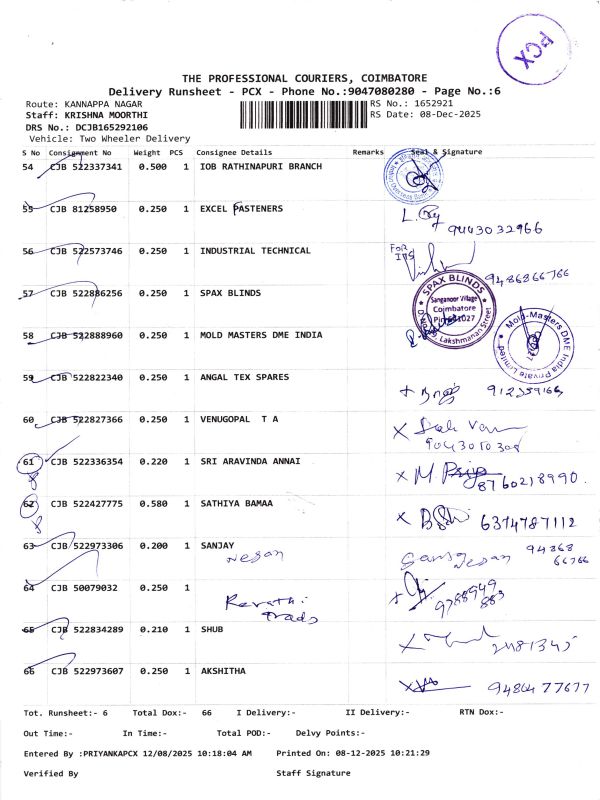 PCX
THE PROFESSIONAL COURIERS, COIMBATORE
Delivery Runsheet - PCX - Phone No.:9047080280 - Page No.:6
Route: KANNAPPA NAGAR
RS No.: 1652921
Staff: KRISHNA MOORTHI
RS Date: 08-Dec-2025
DRS No.: DCJB165292106
Vehicle: Two Wheeler Delivery
S No Consignment No Weight PCS Consignee Details Remarks Seal & Signature
54 CJB 522337341 0.500 1 IOB RATHINAPURI BRANCH
55 CJB 81258950 0.250 1 EXCEL FASTENERS
9443032966
56 CJB 522573746 0.250 1 INDUSTRIAL TECHNICAL
FOR
9486866766
57 CJB 522886256 0.250 1 SPAX BLINDS
SPAX BLINDS
Sanganoor Village
Coimbatore
Lakshmanan Street
58 CJB 522888960 0.250 1 MOLD MASTERS DME INDIA
Mold-Masters DME India Private Limited
59 CJB 522822340 0.250 1 ANGAL TEX SPARES
60 CJB 522827366 0.250 1 VENUGOPAL T A
61 CJB 522336354 0.220 1 SRI ARAVINDA ANNAI
X M. Priya
8760218990.
62 CJB 522427775 0.580 1 SATHIYA BAMAA
6374787112
63 CJB 522973306 0.200 1 SANJAY
94868
66766
64 CJB 50079032 0.250 1
Revathi
trads
9788949
883
65 CJB 522834289 0.210 1 SHUB
66 CJB 522973607 0.250 1 AKSHITHA
9480477677
Tot. Runsheet:- 6 Total Dox:- 66 I Delivery:- II Delivery:- RTN Dox:-
Out Time:- In Time:- Total POD:- Delvy Points:-
Entered By :PRIYANKAPCX 12/08/2025 10:18:04 AM Printed On: 08-12-2025 10:21:29
Verified By Staff Signature